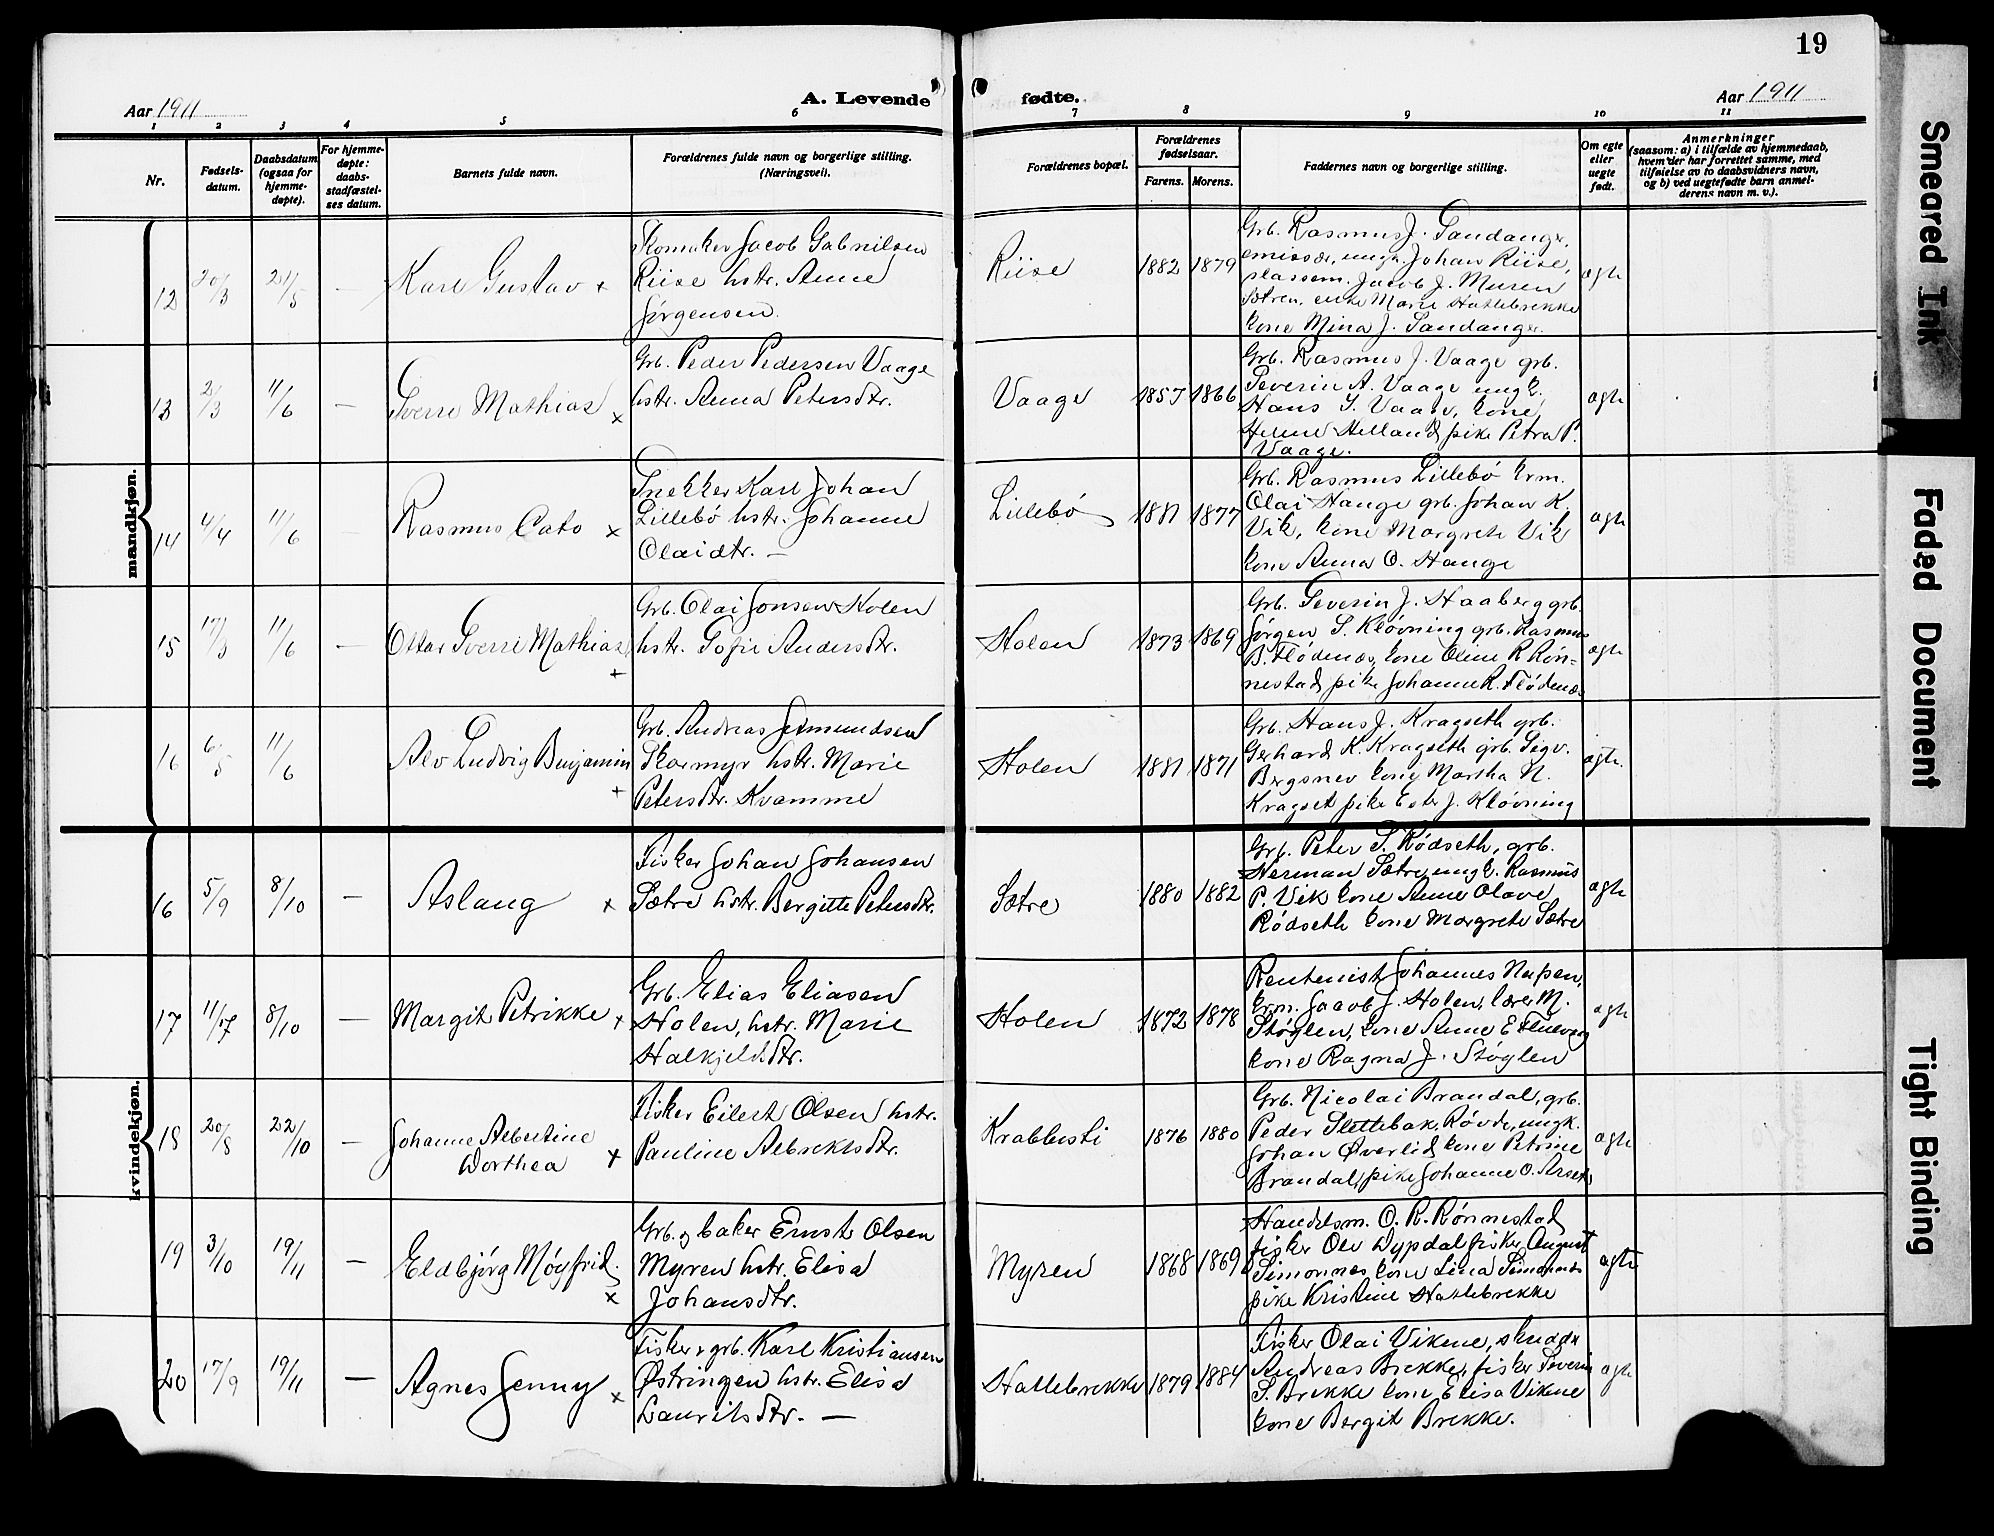 19
Aar 1911
A. Levende fødte.
Aar 1911
1 2 3 4 5 6 7 8 9 10 11
Nr.
Fødsels-
datum.
Daabsdatum
(ogsaa for
hjemme-
døpte).
For hjemme-
døpte:
daabs-
stadfæstel-
ses datum.
Barnets fulde navn.
Forældrenes fulde navn og borgerlige stilling.
(Næringsvei).
Forældrenes bopæl.
Forældrenes
fødselsaar.
Farens. Morens.
Faddernes navn og borgerlige stilling.
Om egte
eller
uegte
født.
Anmerkninger
(saasom: a) i tilfælde av hjemmedaab,
hvem der har forrettet samme, med
tilføielse av to daabsvidners navn,
og b) ved uegtefødte barn anmel-
derens navn m. v.).
mandkjøn.
12 20/3 21/5 — Karl Gustav x
Skomaker Jacob Gabrielsen
Riise hstr. Anne
Jørgensen.
Riise 1882 1879
Grb. Rasmus J. Sandanger,
emissær, ungk. Johan Riise,
Jacob J. Muren
Sætren, enke Marie Hatlebrekke
kone Mina J. Sandanger.
ægte
13 2/3 11/6 — Sverre Mathias x
Grb. Peder Pedersen Vaage
hstr. Anna Petersdtr.
Vaage 1857 1866
Grb. Rasmus J. Vaage grb.
Severin A. Vaage ungk.
Hans S. Vaage, kone
Helene Helland, pike Petra P.
Vaage.
ægte
14 4/4 11/6 — Rasmus Cato x
Snekker Karl Johan
Lillebø hstr. Johanne
Olaidtr. —
Lillebø 1881 1877
Grb. Rasmus Lillebø krm.
Olai Hauge grb. Johan K.
Vik, kone Margrete Vik
kone Anna O. Hauge
ægte
15 17/3 11/6 — Ottar Sverre Mathias +
Grb. Olai Jonsen Holen
hstr. Sofie Andersdtr.
Holen 1873 1869
Grb. Severin J. Haaberg grb.
Jørgen S. Kløvning grb. Rasmus
B. Flødenæs, kone Oline R Røn-
nestad, pike Johanne R. Flødenæs
ægte
16 6/5 11/6 Alv Ludvig Benjamin +
Grb. Andreas Jetmundsen
Skormyr hstr. Marie
Petersdtr. Kvamme
Holen 1881 1871
Grb. Hans J. Kragseth grb.
Gerhard K. Kragseth grb. Sigv.
Bergsnev kone Martha N.
Kragset pike Ester J. Kløvning
ægte.
kvindekjøn.
16 5/9 8/10 — Aslaug x
Fisker Johan Johansen
Sætre hstr. Bergitte Petersdtr.
Sætre 1880 1882
Grb. Peter S. Rødseth, grb.
Herman Sætre, ungk. Rasmus
P. Vik kone Anne Olave
Rødseth kone Margrete Sætre
ægte
17 11/7 8/10 — Margit Petrikke x
Grb. Elias Eliasen
Holen, hstr. Marie
Halkjeldsdtr.
Holen 1872 1878
Rentenist Johannes Nupen,
krm. Jacob J. Holen, lærer M.
Støylen, kone Anne E Flusvog
kone Ragna J. Støylen
ægte
18 20/8 22/10 — Johanne Albertine
Dorthea x
Fisker Eilert Olsen hstr.
Pauline Albrektsdtr.
Krabbesti 1876 1880
Grb. Nicolai Brandal, grb.
Peder Slettebak, Røvde, ungk.
Johan Øverlid kone Petrine
Brandal, pike Johanne O. Arset
ægte
19 3/10 19/11 — Eldbjørg Møyfrid. x
Grb. og baker Ernst Olsen
Myren hstr. Elisa
Johansdtr.
Myren 1868 1869
Handelsm. O. R. Rønnestad
fisker Ole Dypdal fisker August
Simonnes kone Lina Simonnes
pike Kristine Hatlebrekke
ægte
20 17/9 19/11 — Agnes Jenny x
Fisker & grb. Karl Kristiansen
Østringen hstr. Elisa
Lauritsdtr. —
Hatlebrekke 1879 1884
Fisker Olai Vikene, skredder
Andreas Brekke, fisker Severin
S. Brekke kone Elisa Vikene
kone Bergit Brekke.
ægte
Smeared Ink
Faded Document
Tight Binding